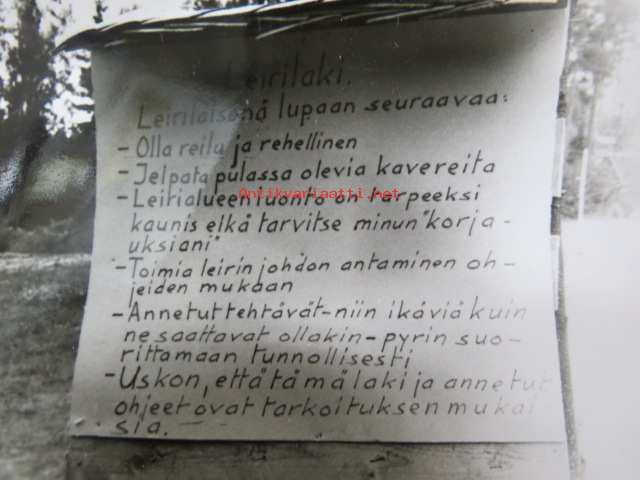 Leirilaki.
Leiriläisenä lupaan seuraavaa:
- Olla reilu ja rehellinen
- Jelpata pulassa olevia kavereita
Antikvariaatti.net
- Leirialueen luonto on tarpeeksi
kaunis eikä tarvitse minun "korja-
uksiani"
- Toimia leirin johdon antaminen oh-
jeiden mukaan
- Annetut tehtävät - niin ikäviä kuin
ne saattavat ollakin - pyrin suo-
rittamaan tunnollisesti
- Uskon, että tämä laki ja annetut
ohjeet ovat tarkoituksen mukai
sia.